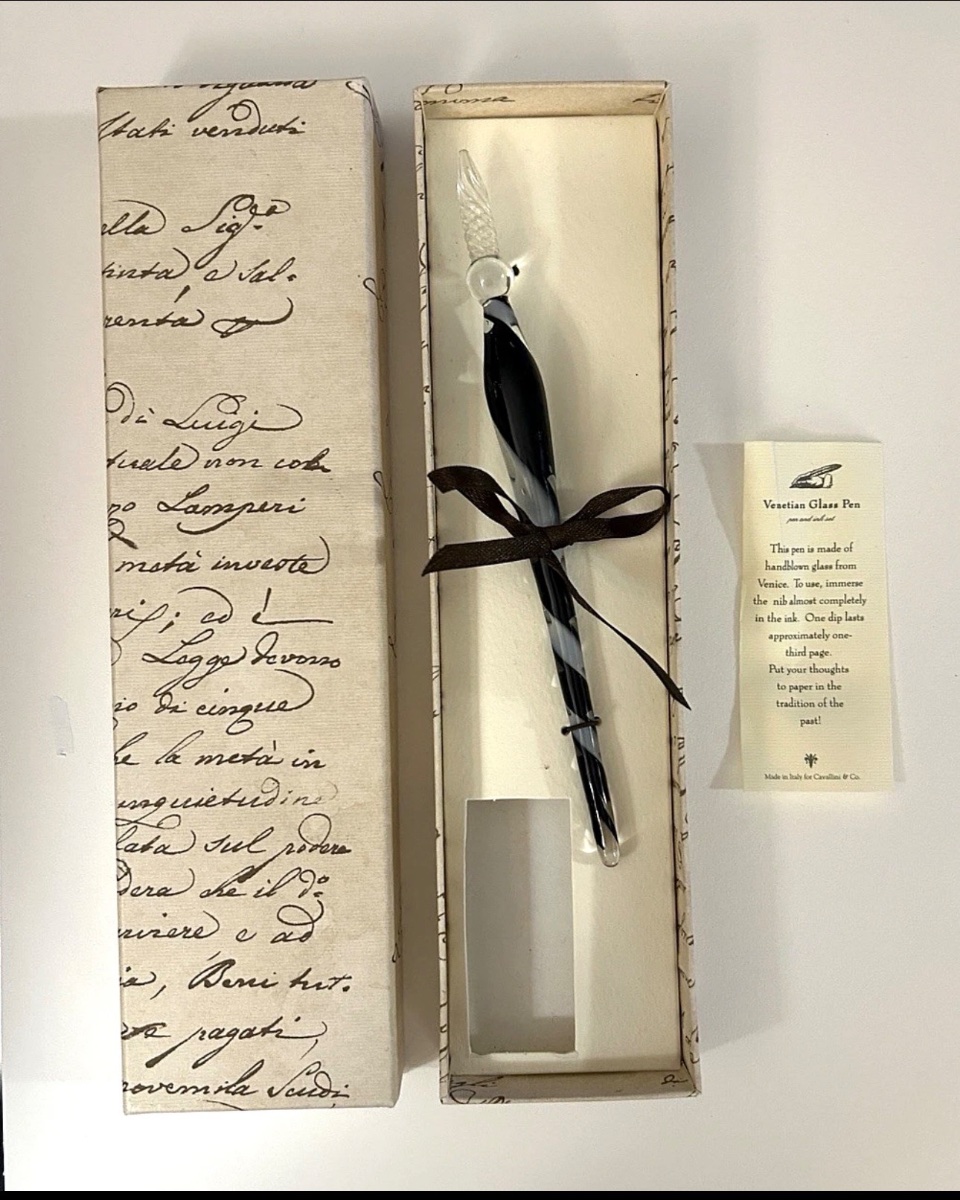 Stati venduti
ella Sig.ª
pinta, e Sal=
renta
di Luigi
tuale non col=
ro Lamperi
metà investe
ri; ed è
Legge devono
io di cinque
he la metà in
inquietudine
lata sul podere
dera che il d.°
rivere e ad
ia, Beni tut=
pagati,
rovemila Scudi
Venetian Glass Pen
pen and ink set
This pen is made of
handblown glass from
Venice. To use, immerse
the nib almost completely
in the ink. One dip lasts
approximately one-
third page.
Put your thoughts
to paper in the
tradition of the
past!
Made in Italy for Cavallini & Co.